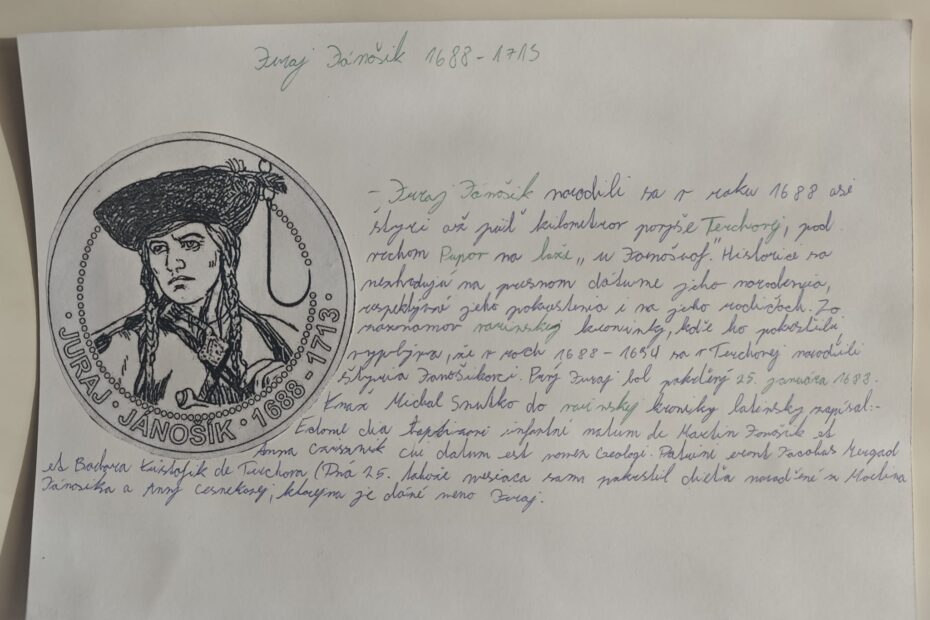 Juraj Jánošík 1688-1713
JURAJ · JÁNOŠÍK · 1688 - 1713
- Juraj Jánošík narodili sa v roku 1688 asi
štyri až päť kilometrov Terchovej, pod
vrchom Pupov na laze „u Jánošov". Historici sa
nezhodujú na presnom dátume jeho narodenia,
jeho pokrstenia i na jeho rodičoch. Zo
záznamov varínskej kroniky, kde ho pokrstili,
vyplýva, že v roch 1688 - 1694 sa v Terchovej narodili
štyria Jánošíkovci. Prvý Juraj bol pokrstený 25. januára 1688.
Kňaz Michal Smutko do varínskej kroniky latinsky napísal:
Eadem die infantem natum de Martin Jánošík et
Anna cui datum est nomen Georgi. Patrini erant Jacobus Mergad
et Barbara Kristofik de Terchova (Dňa 25. tohože mesiaca som pokrstil dieťa narodené z Martina
Jánošíka a Anny Cesnekovej, ktorému je dáné meno Juraj.